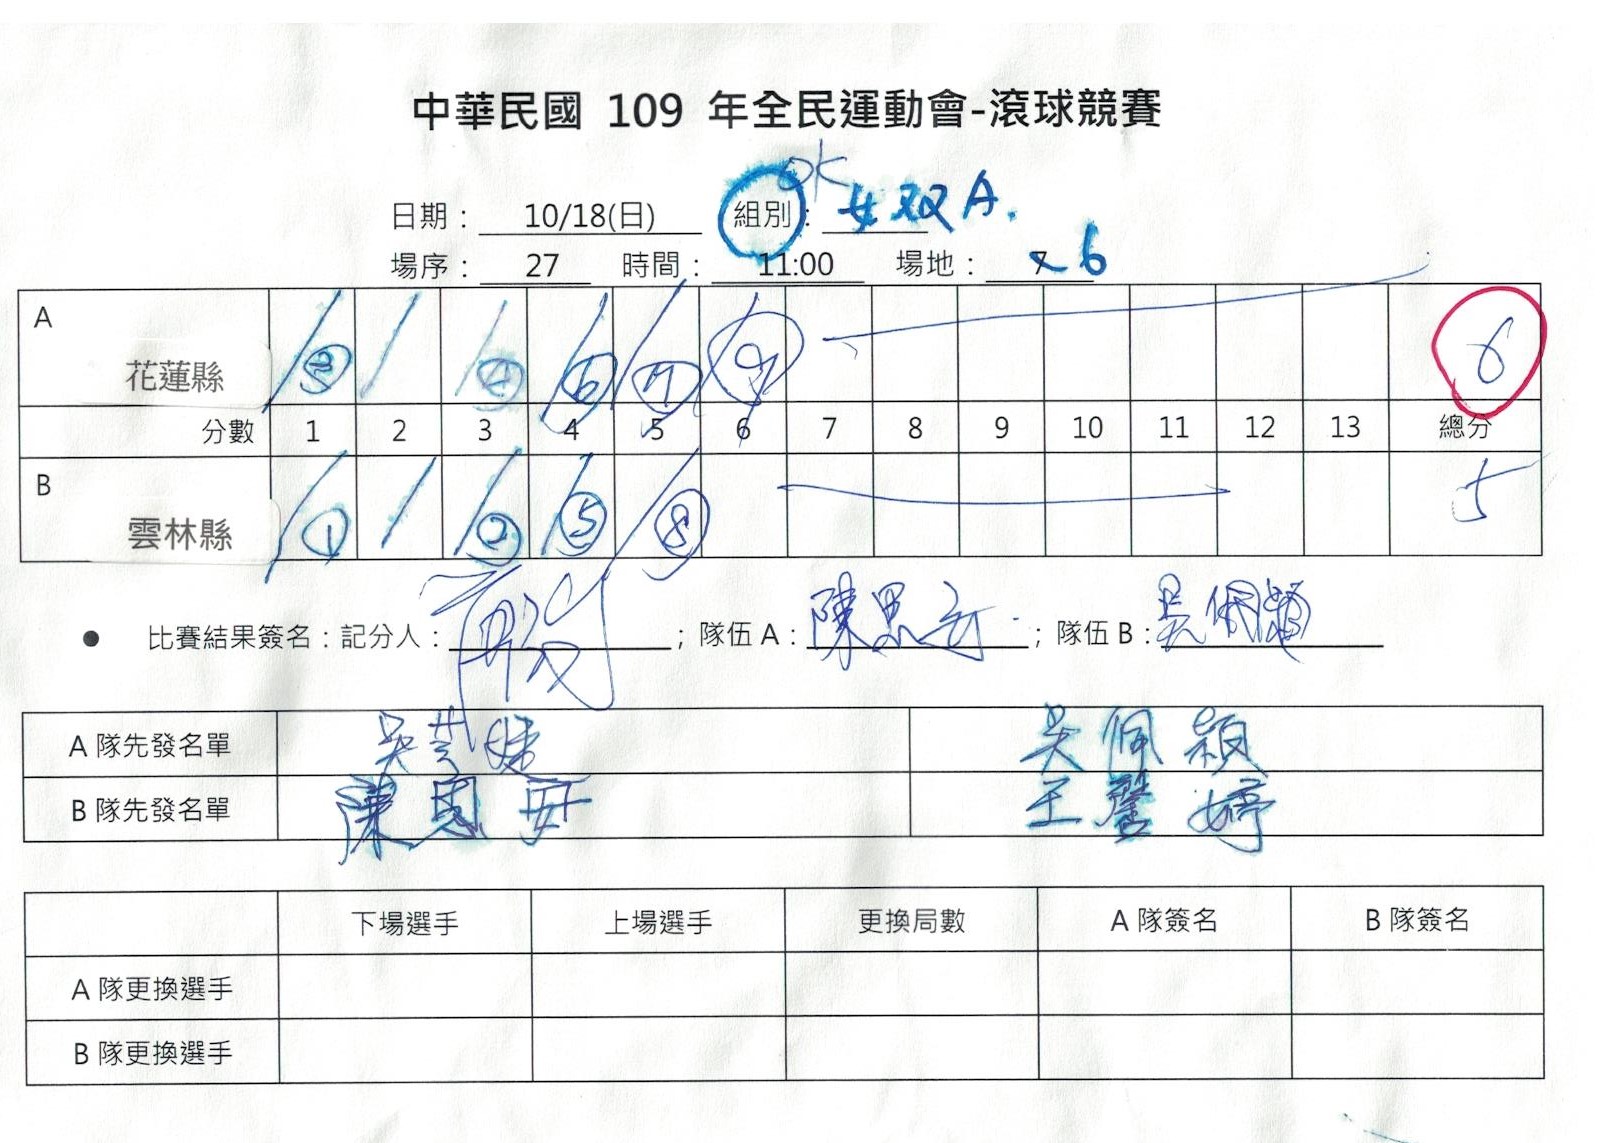 中華民國 109 年全民運動會-滾球競賽
OK
日期： 10/18(日) 組別： 女双A.
場序： 27 時間： 11:00 場地： 7 6
A 花蓮縣 ③ ④ ⑥ ⑦ ⑨ 6
分數 1 2 3 4 5 6 7 8 9 10 11 12 13 總分
B 雲林縣 ① ② ⑤ ⑧ 5
● 比賽結果簽名：記分人： ；隊伍 A： 陳思 ；隊伍 B： 吳佩穎
A 隊先發名單 吳 吳佩穎
B 隊先發名單 陳思妤 王馨婷
下場選手 上場選手 更換局數 A 隊簽名 B 隊簽名
A 隊更換選手
B 隊更換選手